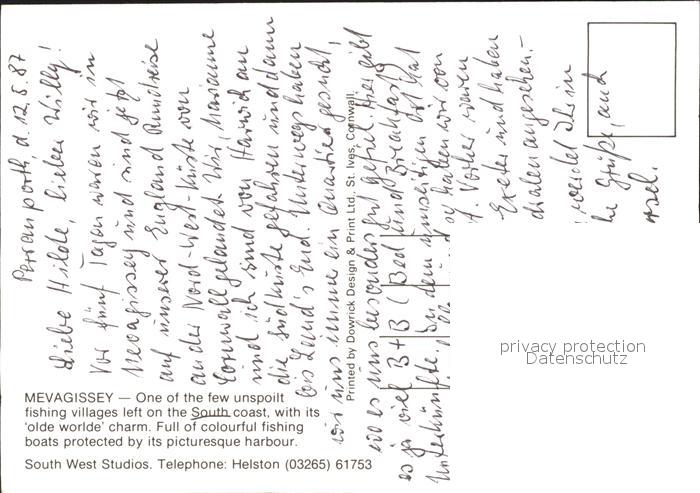 Perranporth, d. 12.8.87
Liebe Hilde, lieber Willy!
Vor fünf Tagen waren wir in
Mevagissey und sind jetzt
auf unserer England Rundreise
an der Nord-West-Küste von
Cornwall gelandet. Wir, Marianne
und ich sind von Harwich an
die Südküste gefahren und dann
bis Land's End. Unterwegs haben
wir uns immer ein Quartier gesucht,
wo es uns besonders gut gefiel. Hier gibt
es ja viel B+B (Bed and Breakfast)
Unterkünfte. Bei dem Ort hat
haben wir von
Vorher waren
Exeter und haben
angesehen.-
Ihr in
Grüße, auch
MEVAGISSEY — One of the few unspoilt
fishing villages left on the South coast, with its
'olde worlde' charm. Full of colourful fishing
boats protected by its picturesque harbour.
South West Studios. Telephone: Helston (03265) 61753
Printed by Dowrick Design & Print Ltd., St. Ives, Cornwall.
privacy protection
Datenschutz